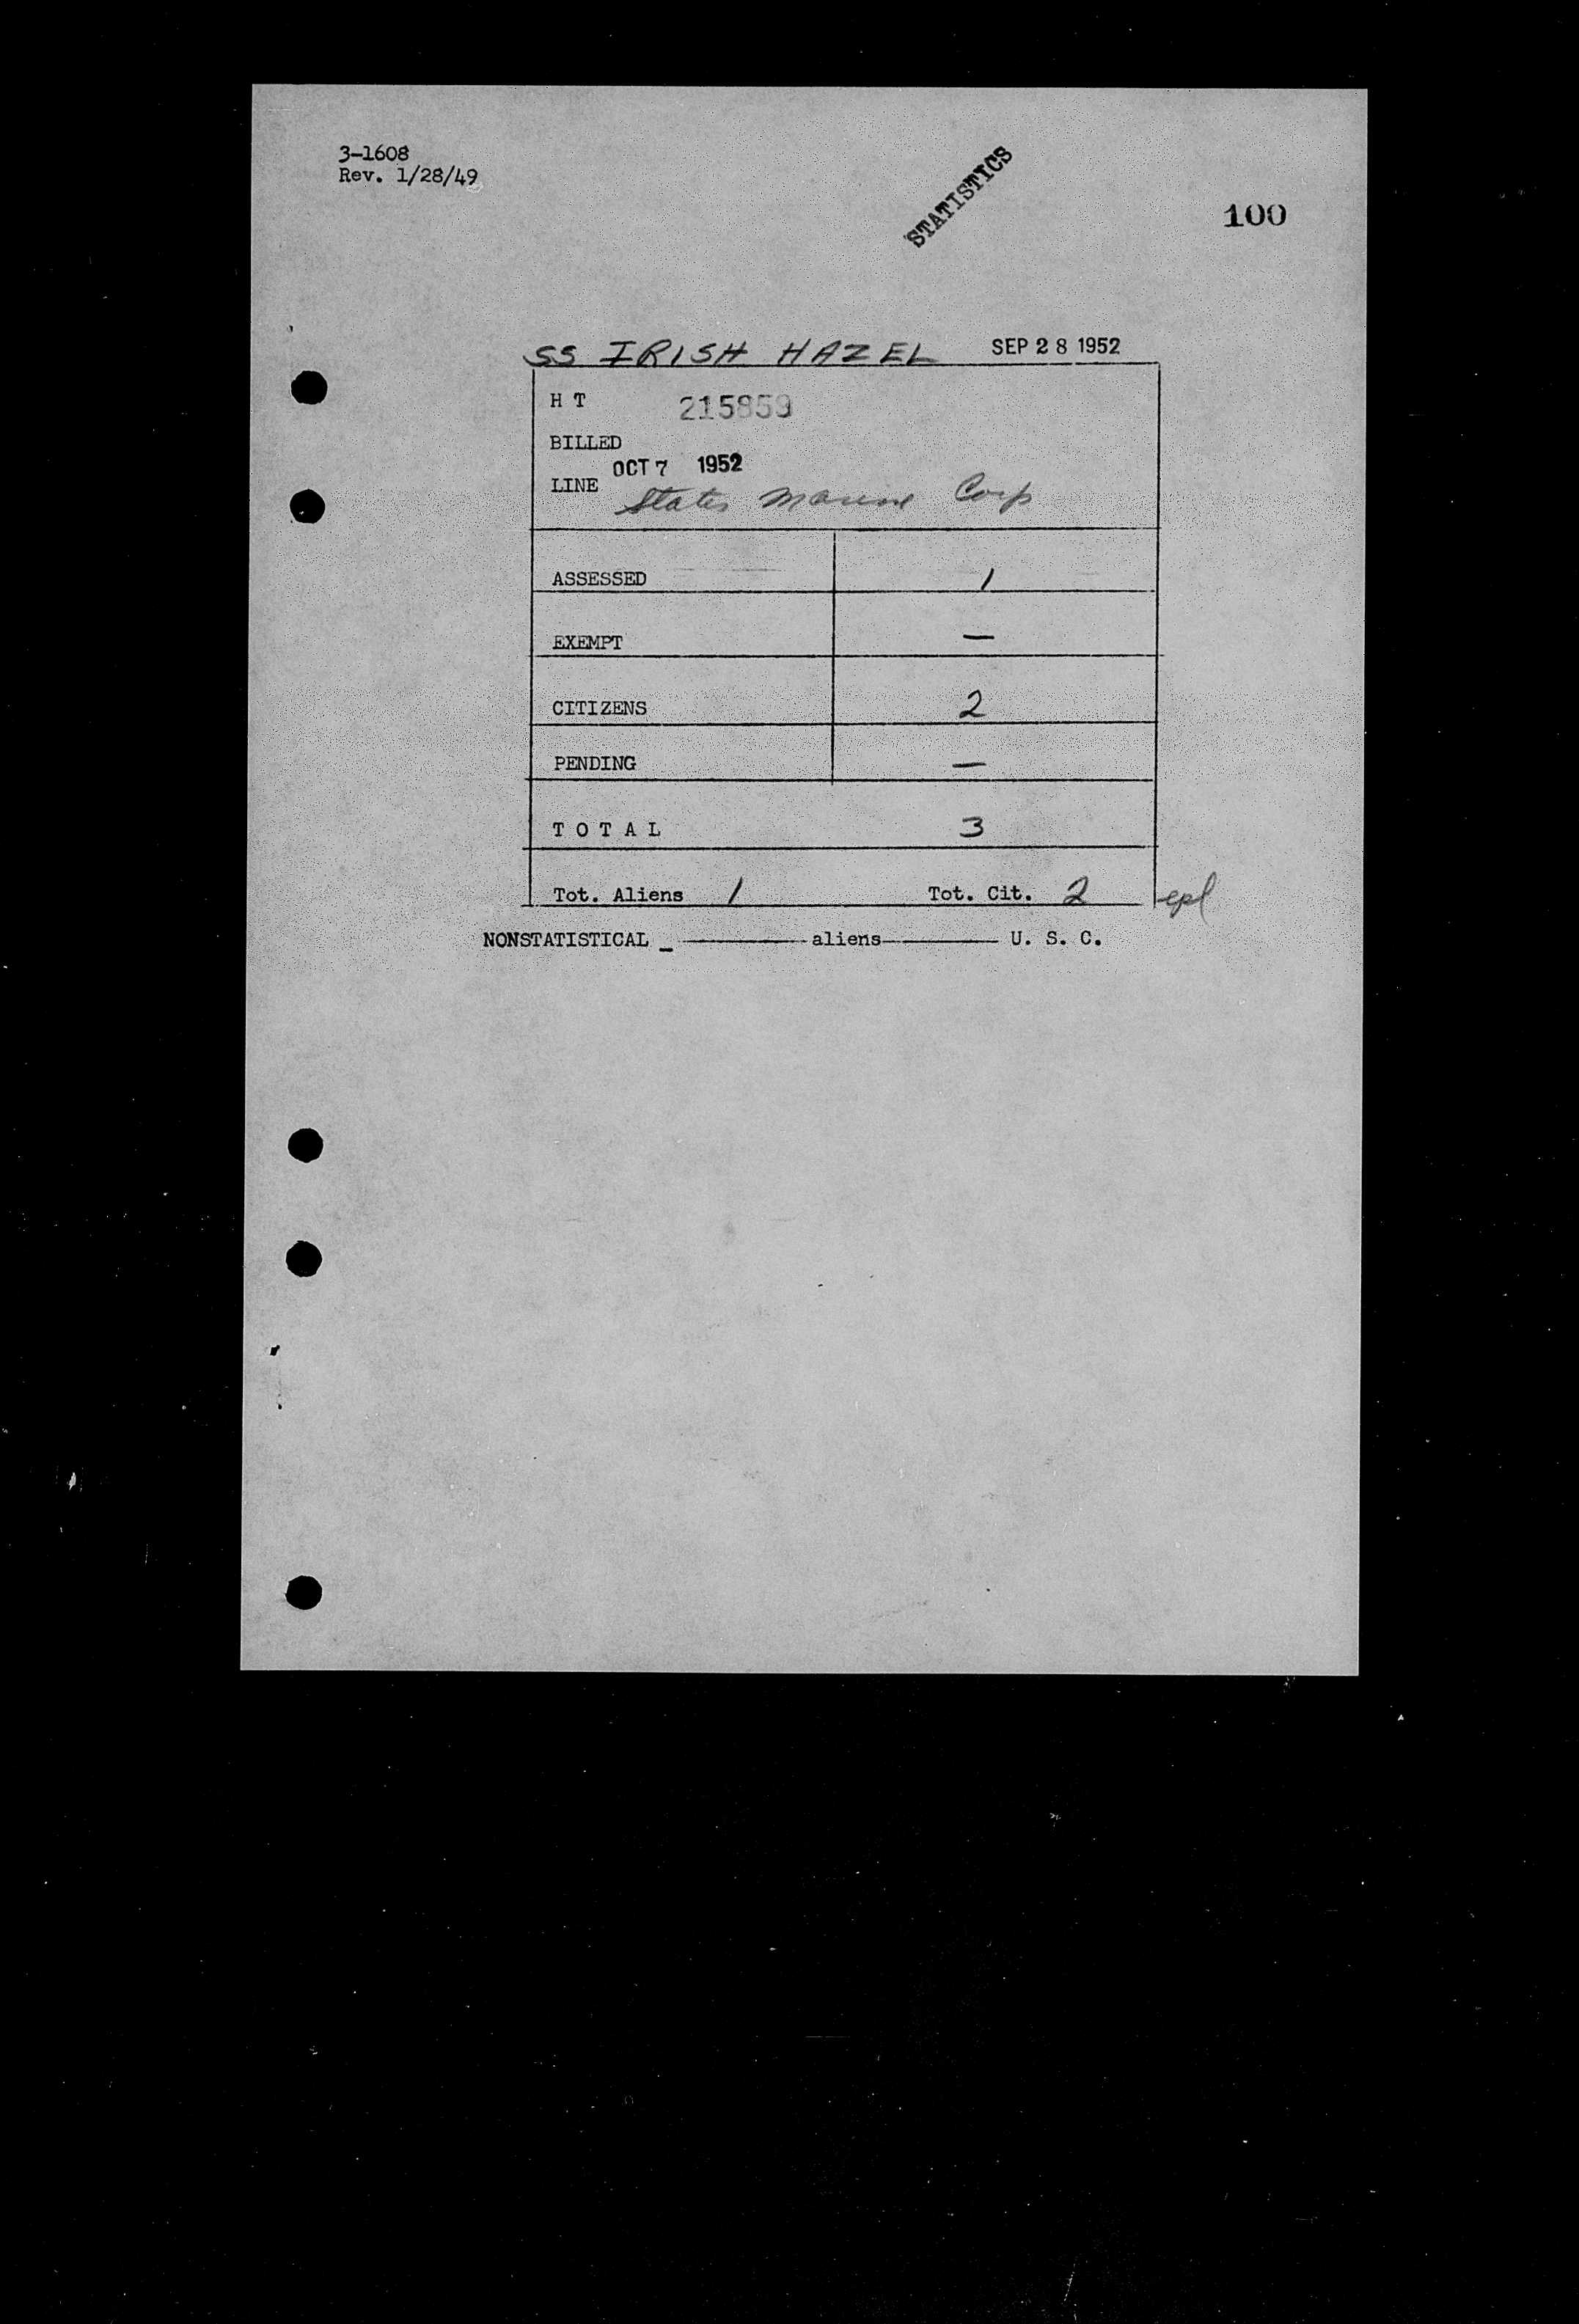 3-1608
Rev. 1/28/49
STATISTICS
100
SS IRISH HAZEL SEP 28 1952
H T 215859
BILLED
OCT 7 1952
LINE States Marine Corp
ASSESSED 1
EXEMPT —
CITIZENS 2
PENDING —
T O T A L 3
Tot. Aliens 1 Tot. Cit. 2 epl
NONSTATISTICAL _ ———— aliens ———— U. S. C.